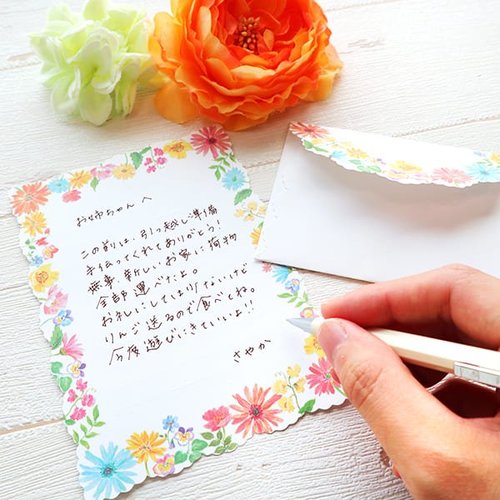 お姉ちゃんへ
この前は、引っ越し準備
手伝ってくれてありがとう!
無事、新しいお家に荷物
全部運べたよ。
お礼に…しては少ないけど
りんご送るので食べてね。
今度遊びにきていいよ!!
さやか